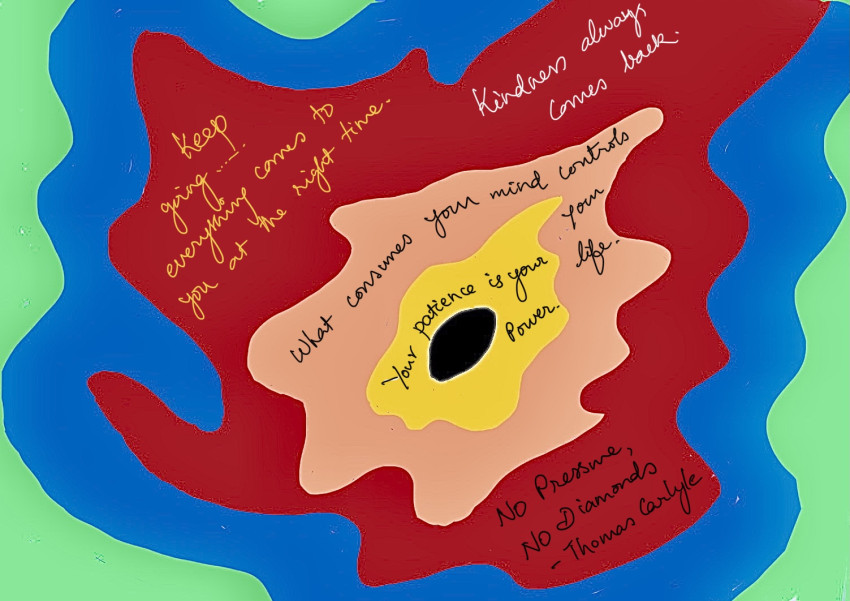 Kindness always
comes back.
Keep
going ....!
everything comes to
you at the right time.
What consumes your mind controls
your
life.
Your patience is your
Power.
No Pressure,
No Diamonds
- Thomas Carlyle